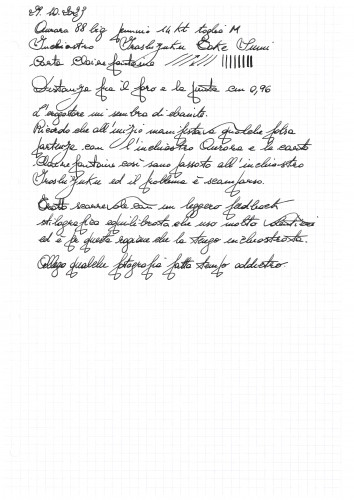 29.10.2023
Aurora 88 big pennino 14 kt taglio M
Inchiostro Iroshizuku Take Sumi
Carta Clairefontaine
Distanza fra il foro e la punta cm 0,96
L'ergastore mi sembra di ebanite.
Ricordo che all'inizio manifestava qualche falsa
partenza con l'inchiostro Aurora e la carta
Clairefontaine così sono passato all'inchiostro
Iroshizuku ed il problema è scomparso.
scorrevole con un leggero feedback
stilografica equilibrata che uso molto volentieri
ed è per questa ragione che la tengo inchiostrata.
Allego qualche fotografia fatta tempo addietro.